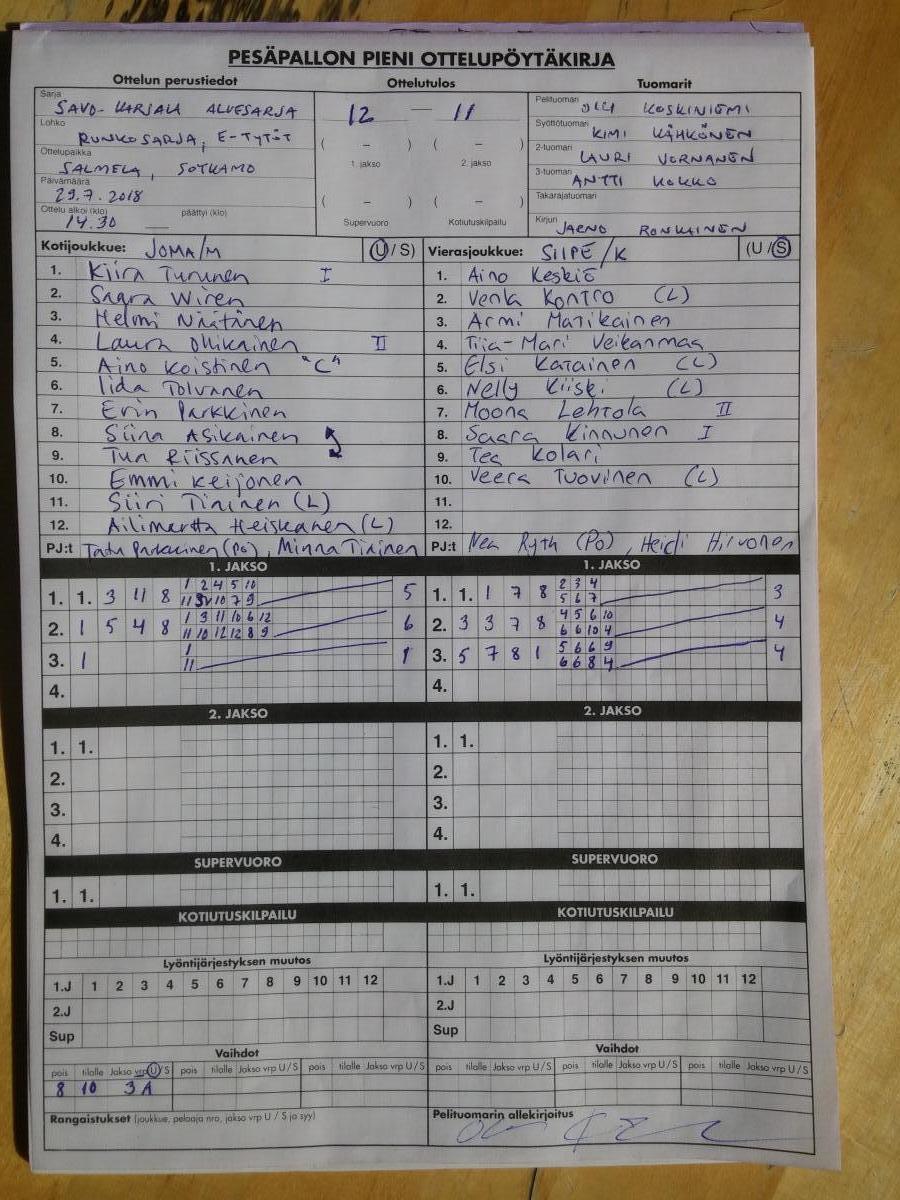 PESÄPALLON PIENI OTTELUPÖYTÄKIRJA
Ottelun perustiedot Ottelutulos Tuomarit
Sarja SAVO-KARJALA ALUESARJA
Lohko RUNKOSARJA, E-TYTÖT
Ottelupaikka SALMELA, SOTKAMO
Päivämäärä 29.7.2018
Ottelu alkoi (klo) 14.30 päättyi (klo)
12 — 11
( – ) ( – )
1. jakso 2. jakso
( – ) ( – )
Supervuoro Kotiutuskilpailu
Pelituomari OLLI KOSKINIEMI
Syöttötuomari KIMI KÄHKÖNEN
2-tuomari LAURI VORNANEN
3-tuomari ANTTI KOKKO
Takarajatuomari
Kirjuri JARNO RONKAINEN
Kotijoukkue: JOMA/M (U/S) Vierasjoukkue: SIIPE/K (U/S)
1. Kiira Turunen I 1. Aino Keskiö
2. Saara Wiren 2. Venla Kontro (L)
3. Helmi Näätänen 3. Armi Matikainen
4. Laura Ollikainen II 4. Tiia-Mari Veikanmaa
5. Aino Koistinen "C" 5. Elsi Katainen (L)
6. Iida Tolvanen 6. Nelly Kiiski (L)
7. Erin Parkkinen 7. Moona Lehtola II
8. Siina Asikainen 8. Saara Kinnunen I
9. Tua Riissanen 9. Tea Kolari
10. Emmi Keijonen 10. Veera Tuovinen (L)
11. Siiri Tirinen (L) 11.
12. Ailimartta Heiskanen (L) 12.
PJ:t Parkkinen (Po), Minna Tirinen PJ:t Nea Ryth (Po), Heidi Hirvonen
1. JAKSO 1. JAKSO
1. 1. 3 11 8 1 2 4 5 10 5 1. 1. 1 7 8 2 3 4 3
11 10 7 9 5 6 7
2. 1 5 4 8 1 3 11 10 6 12 6 2. 3 3 7 8 4 5 6 10 4
11 10 12 12 8 9 6 6 10 4
3. 1 1 1 3. 5 7 8 1 5 6 6 9 4
11 6 6 8 4
4. 4.
2. JAKSO 2. JAKSO
1. 1. 1. 1.
2. 2.
3. 3.
4. 4.
SUPERVUORO SUPERVUORO
1. 1. 1. 1.
KOTIUTUSKILPAILU KOTIUTUSKILPAILU
Lyöntijärjestyksen muutos Lyöntijärjestyksen muutos
1.J 1 2 3 4 5 6 7 8 9 10 11 12 1.J 1 2 3 4 5 6 7 8 9 10 11 12
2.J 2.J
Sup Sup
Vaihdot Vaihdot
pois tilalle Jakso vrp U/S pois tilalle Jakso vrp U/S pois tilalle Jakso vrp U/S pois tilalle Jakso vrp U/S pois tilalle Jakso vrp U/S pois tilalle Jakso vrp U/S
8 10 3A
Rangaistukset (joukkue, pelaaja nro, jakso vrp U / S ja syy) Pelituomarin allekirjoitus